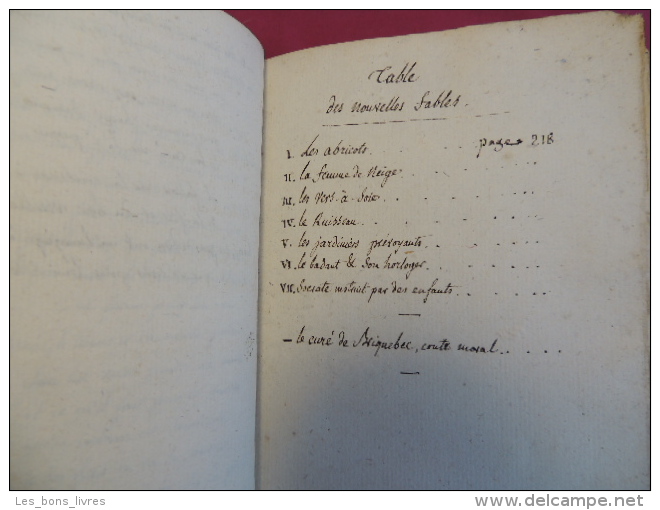 Table
des nouvelles fables.
I. Les abricots. . . . page 218
II. la femme de Neige . . . .
III. les vers-à-Soie . . . . .
IV. le Ruisseau . . . . .
V. les jardiniers prévoyants . . . . .
VI. le badaut & son horloger . . . . .
VII. Socrate instruit par des enfants . . . . .
– le curé de Briquebec, conte moral . . . . .
Les_bons_livres
delcampe.net